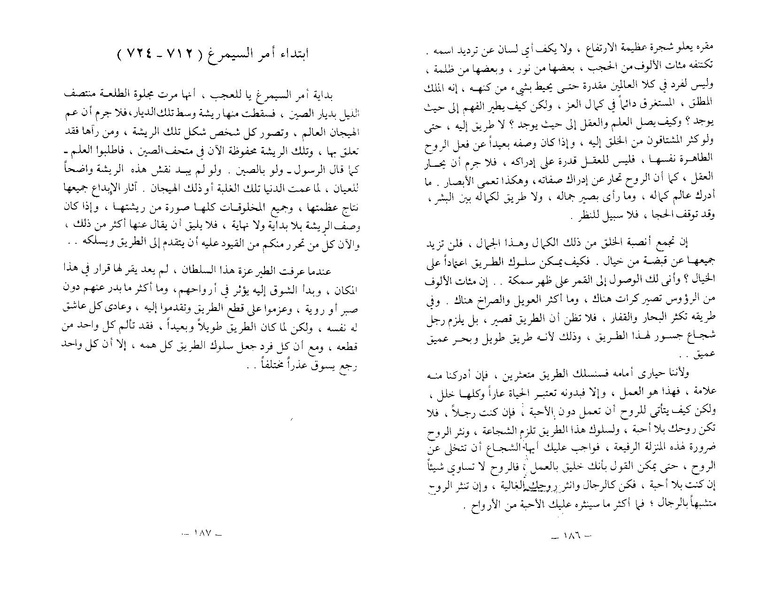 مقره يعلو شجرة عظيمة الارتفاع ، ولا يكف أي لسان عن ترديد اسمه .
تكتنفه مئات الألوف من الحجب ، بعضها من نور ، وبعضها من ظلمة ،
وليس لفرد في كلا العالمين مقدرة حتى يحيط بشيء من كنهه ، إنه الملك
المطلق ، المستغرق دائماً في كمال العز ، ولكن كيف يطير الفهم إلى حيث
يوجد ؟ وكيف يصل العلم والعقل إلى حيث يوجد ؟ لا طريق إليه ، حتى
ولو كثر المشتاقون من الخلق إليه ، وإذا كان وصفه بعيداً عن فعل الروح
الطاهرة نفسها ، فليس للعقل قدرة على إدراكه ، فلا جرم أن يحار
العقل ، كما أن الروح تحار عن إدراك صفاته ، وهكذا تعمى الأبصار . ما
أدرك عالم كماله ، وما رأى بصير جماله ، ولا طريق لكماله بين البشر ،
وقد توقف الحجا ، فلا سبيل للنظر .
إن تجمع أنصبة الخلق من ذلك الكمال وهذا الجمال ، فلن تزيد
جميعها عن قبضة من خيال . فكيف يمكن سلوك الطريق اعتماداً على
الخيال ؟ وأنى لك الوصول إلى القمر على ظهر سمكة . . إن مئات الألوف
من الرؤوس تصير كرات هناك ، وما أكثر العويل والصراخ هناك . وفي
طريقه تكثر البحار والقفار ، فلا تظن أن الطريق قصير ، بل يلزم رجل
شجاع جسور لهذا الطريق ، وذلك لأنه طريق طويل وبحر عميق
عميق . .
ولأننا حيارى أمامه فسنسلك الطريق متعثرين ، فإن أدركنا منه
علامة ، فهذا هو العمل ، وإلا فبدونه تعتبر الحياة عاراً وكلها خلل ،
ولكن كيف يتأتى للروح أن تعمل دون الأحبة ، فإن كنت رجلاً ، فلا
تكن روحك بلا أحبة ، ولسلوك هذا الطريق تلزم الشجاعة ، ونثر الروح
ضرورة لهذه المنزلة الرفيعة ، فواجب عليك أيها الشجاع أن تتخلى عن
الروح ، حتى يمكن القول بأنك خليق بالعمل ، فالروح لا تساوي شيئاً
إن كنت بلا أحبة ، فكن كالرجال وانثر روحك الغالية ، وإن تنثر الروح
متشبهاً بالرجال ؛ فما أكثر ما سينثره عليك الأحبة من الأرواح .
– ١٨٦ –
ابتداء أمر السيمرغ ( ٧١٢ – ٧٢٤ )
بداية أمر السيمرغ يا للعجب ، أنها مرت مجلوة الطلعة منتصف
الليل بديار الصين ، فسقطت منها ريشة وسط تلك الديار، فلا جرم أن عم
الهيجان العالم ، وتصور كل شخص شكل تلك الريشة ، ومن رآها فقد
تعلق بها ، وتلك الريشة محفوظة الآن في متحف الصين ، فاطلبوا العلم –
كما قال الرسول – ولو بالصين . ولو لم يبد نقش هذه الريشة واضحاً
للعيان ، لما عمت الدنيا تلك الغلبة أو ذلك الهيجان . آثار الإبداع جميعها
نتاج عظمتها ، وجميع المخلوقات كلها صورة من ريشتها ، وإذا كان
وصف الريشة بلا بداية ولا نهاية ، فلا يليق أن يقال عنها أكثر من ذلك ،
والآن كل من تحرر منكم من القيود عليه أن يتقدم إلى الطريق ويسلكه . .
عندما عرفت الطير عزة هذا السلطان ، لم يعد يقر لها قرار في هذا
المكان ، وبدأ الشوق إليه يؤثر في أرواحهم، وما أكثر ما بدر عنهم دون
صبر أو روية ، وعزموا على قطع الطريق وتقدموا إليه ، وعادى كل عاشق
له نفسه ، ولكن لما كان الطريق طويلاً وبعيداً ، فقد تألم كل واحد من
قطعه ، ومع أن كل فرد جعل سلوك الطريق كل همه ، إلا أن كل واحد
رجع يسوق عذراً مختلفاً . .
– ١٨٧ –